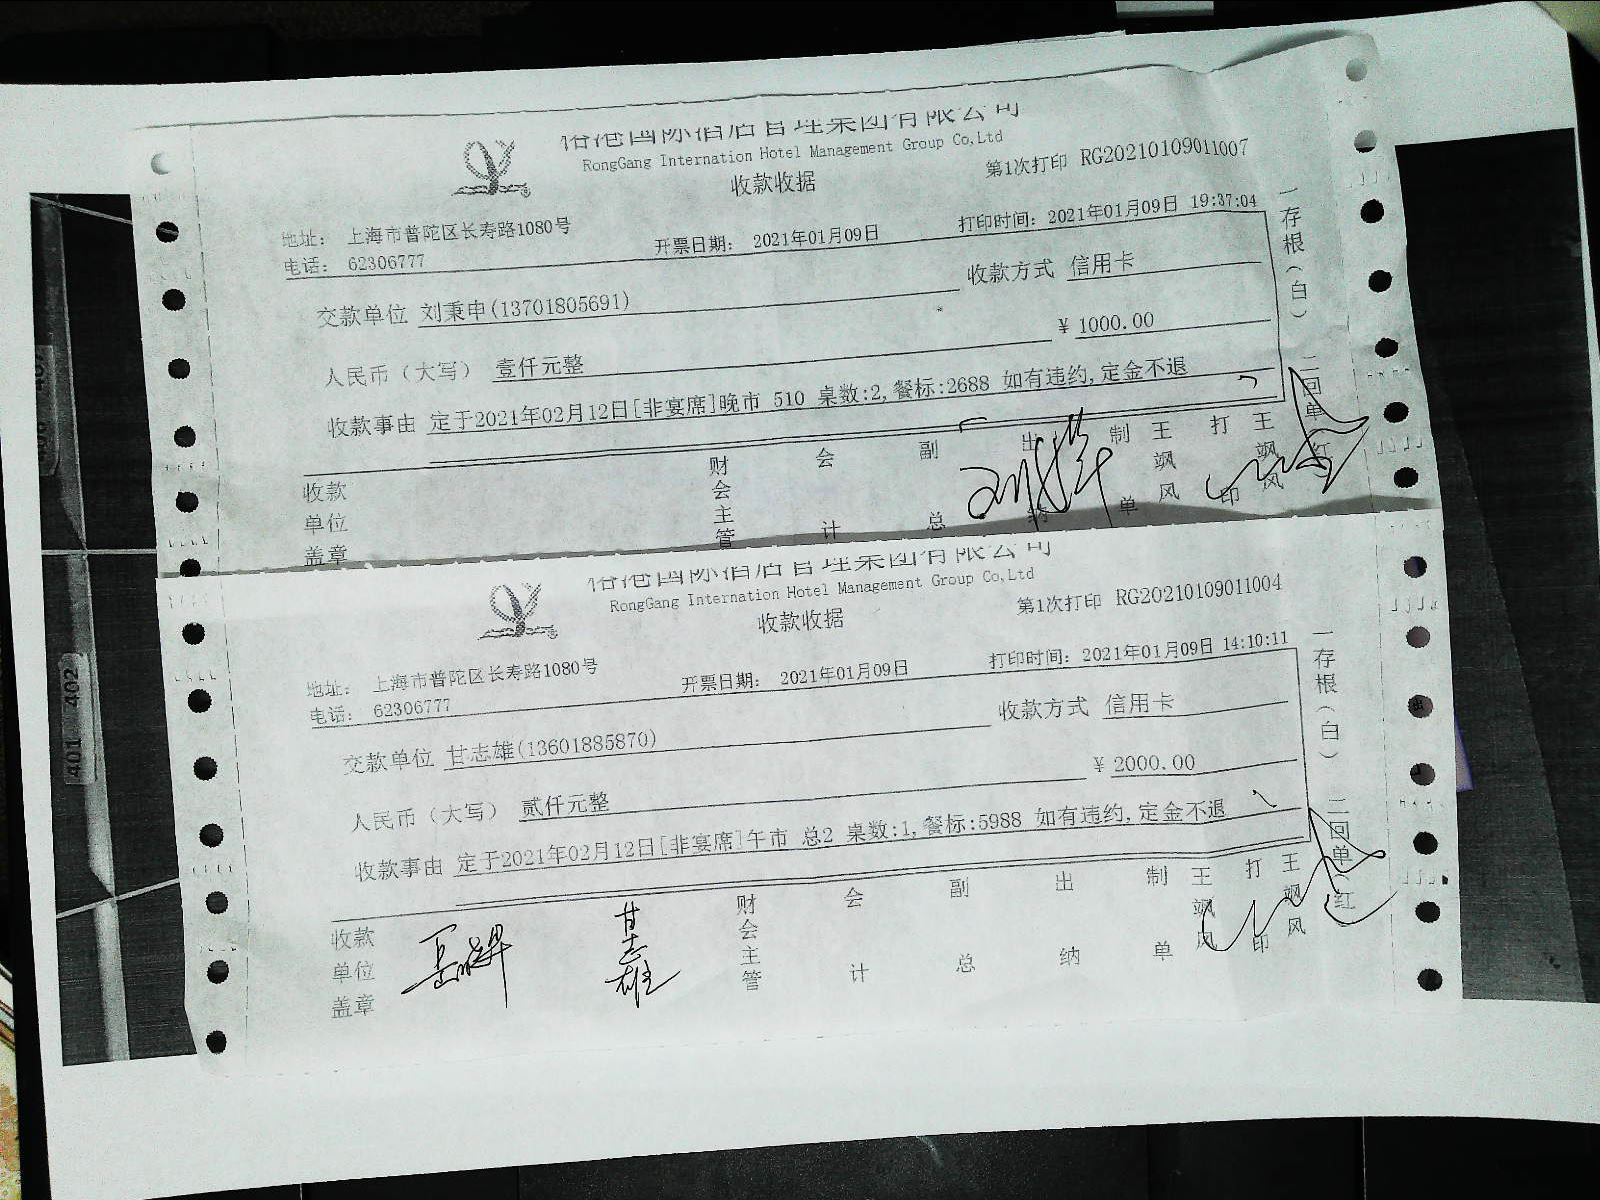 俗港国际酒店管理集团有限公司
RongGang Internation Hotel Management Group Co,Ltd
收款收据
第1次打印 RG20210109011007
地址： 上海市普陀区长寿路1080号
电话： 62306777
开票日期： 2021年01月09日
打印时间：2021年01月09日 19:37:04
收款方式 信用卡
交款单位 刘秉申(13701805691)
人民币（大写） 壹仟元整
¥ 1000.00
收款事由 定于2021年02月12日[非宴席]晚市 510 桌数:2,餐标:2688 如有违约,定金不退
收款单位盖章 财会主管 会计 副总 出纳 制单 王飒风 打印 王飒风
一存根(白) 二回单(红
俗港国际酒店管理集团有限公司
RongGang Internation Hotel Management Group Co,Ltd
收款收据
第1次打印 RG20210109011004
地址： 上海市普陀区长寿路1080号
电话： 62306777
开票日期： 2021年01月09日
打印时间：2021年01月09日 14:10:11
收款方式 信用卡
交款单位 甘志雄(13601885870)
人民币（大写） 贰仟元整
¥ 2000.00
收款事由 定于2021年02月12日[非宴席]午市 总2 桌数:1,餐标:5988 如有违约,定金不退
收款单位盖章 甘志雄 财会主管 会计 副总 出纳 制单 王飒风 打印 王飒风
一存根(白) 二回单(红
401 402